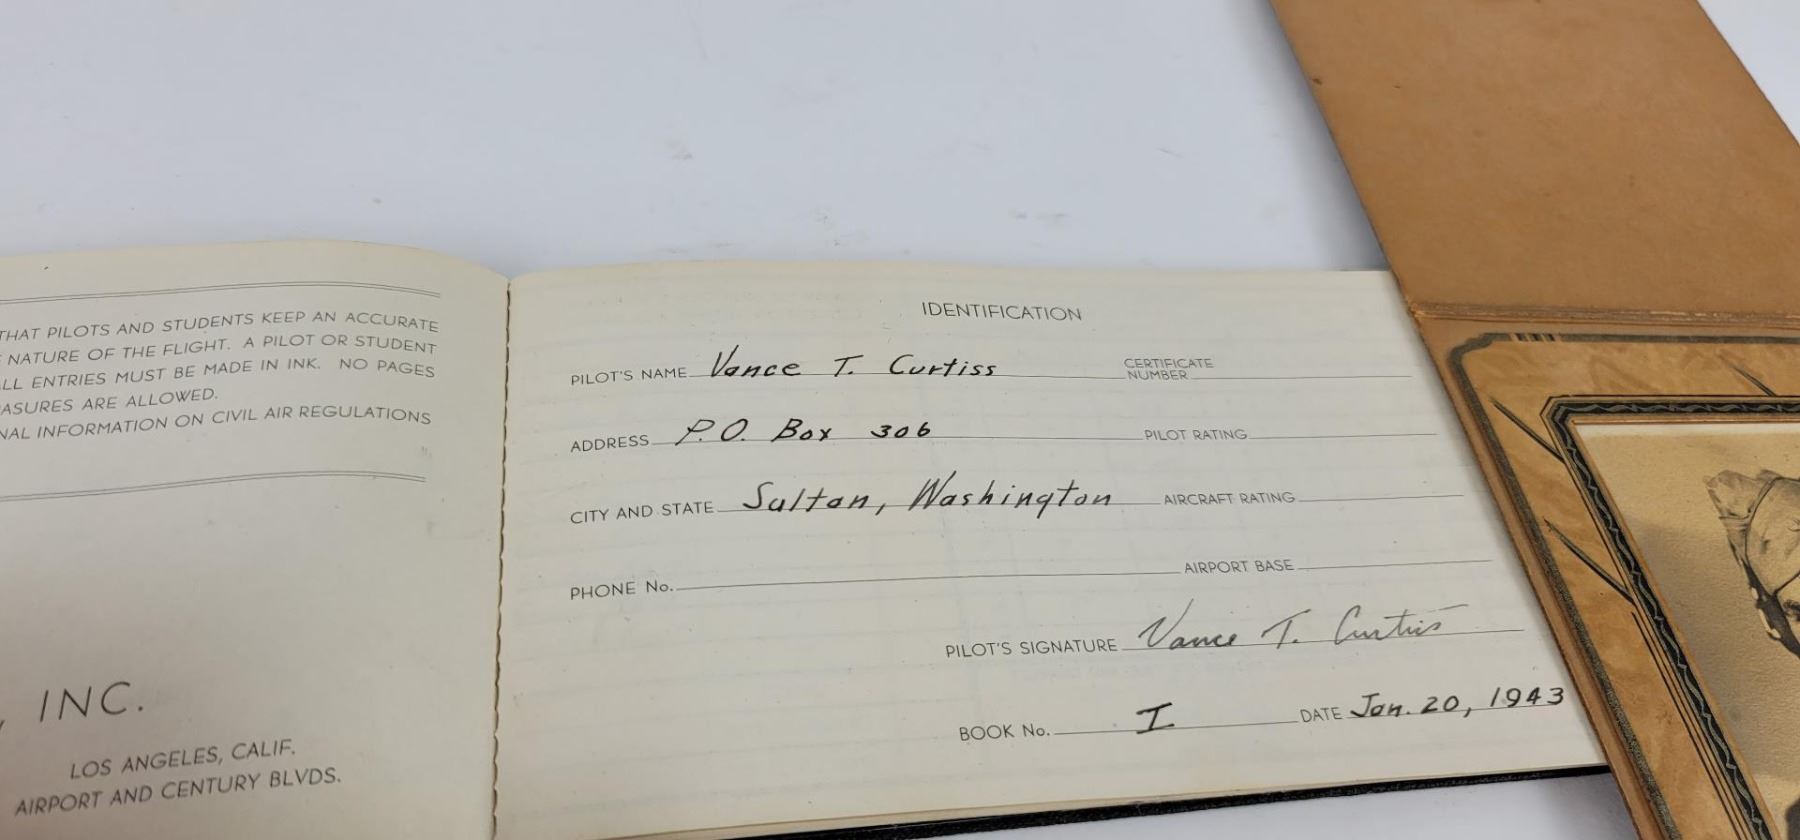 THAT PILOTS AND STUDENTS KEEP AN ACCURATE
NATURE OF THE FLIGHT. A PILOT OR STUDENT
ALL ENTRIES MUST BE MADE IN INK. NO PAGES
ASURES ARE ALLOWED.
NAL INFORMATION ON CIVIL AIR REGULATIONS
, INC.
LOS ANGELES, CALIF.
AIRPORT AND CENTURY BLVDS.
IDENTIFICATION
PILOT'S NAME Vance T. Curtiss CERTIFICATE NUMBER
ADDRESS P.O. Box 306 PILOT RATING
CITY AND STATE Sultan, Washington AIRCRAFT RATING
PHONE No. AIRPORT BASE
PILOT'S SIGNATURE Vance T. Curtiss
BOOK No. I DATE Jan. 20, 1943